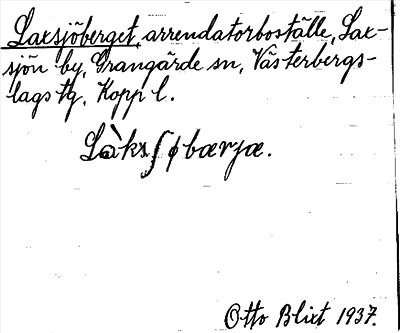 Laxsjöberget, arrendatorboställe, Lax-
sjön by, Grangärde sn, Västerbergs-
lags tg, Kopp l.
Làksʃøbærjæ.
Otto Blixt 1937.